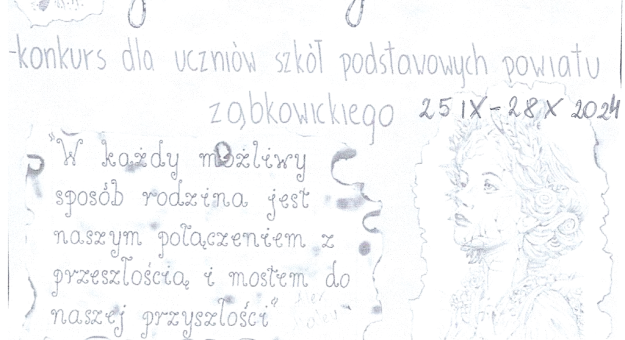 -konkurs dla uczniów szkół podstawowych powiatu
ząbkowickiego 25 IX - 28 X 2024
"W każdy możliwy
sposób rodzina jest
naszym połączeniem z
przeszłością i mostem do
naszej przyszłości"